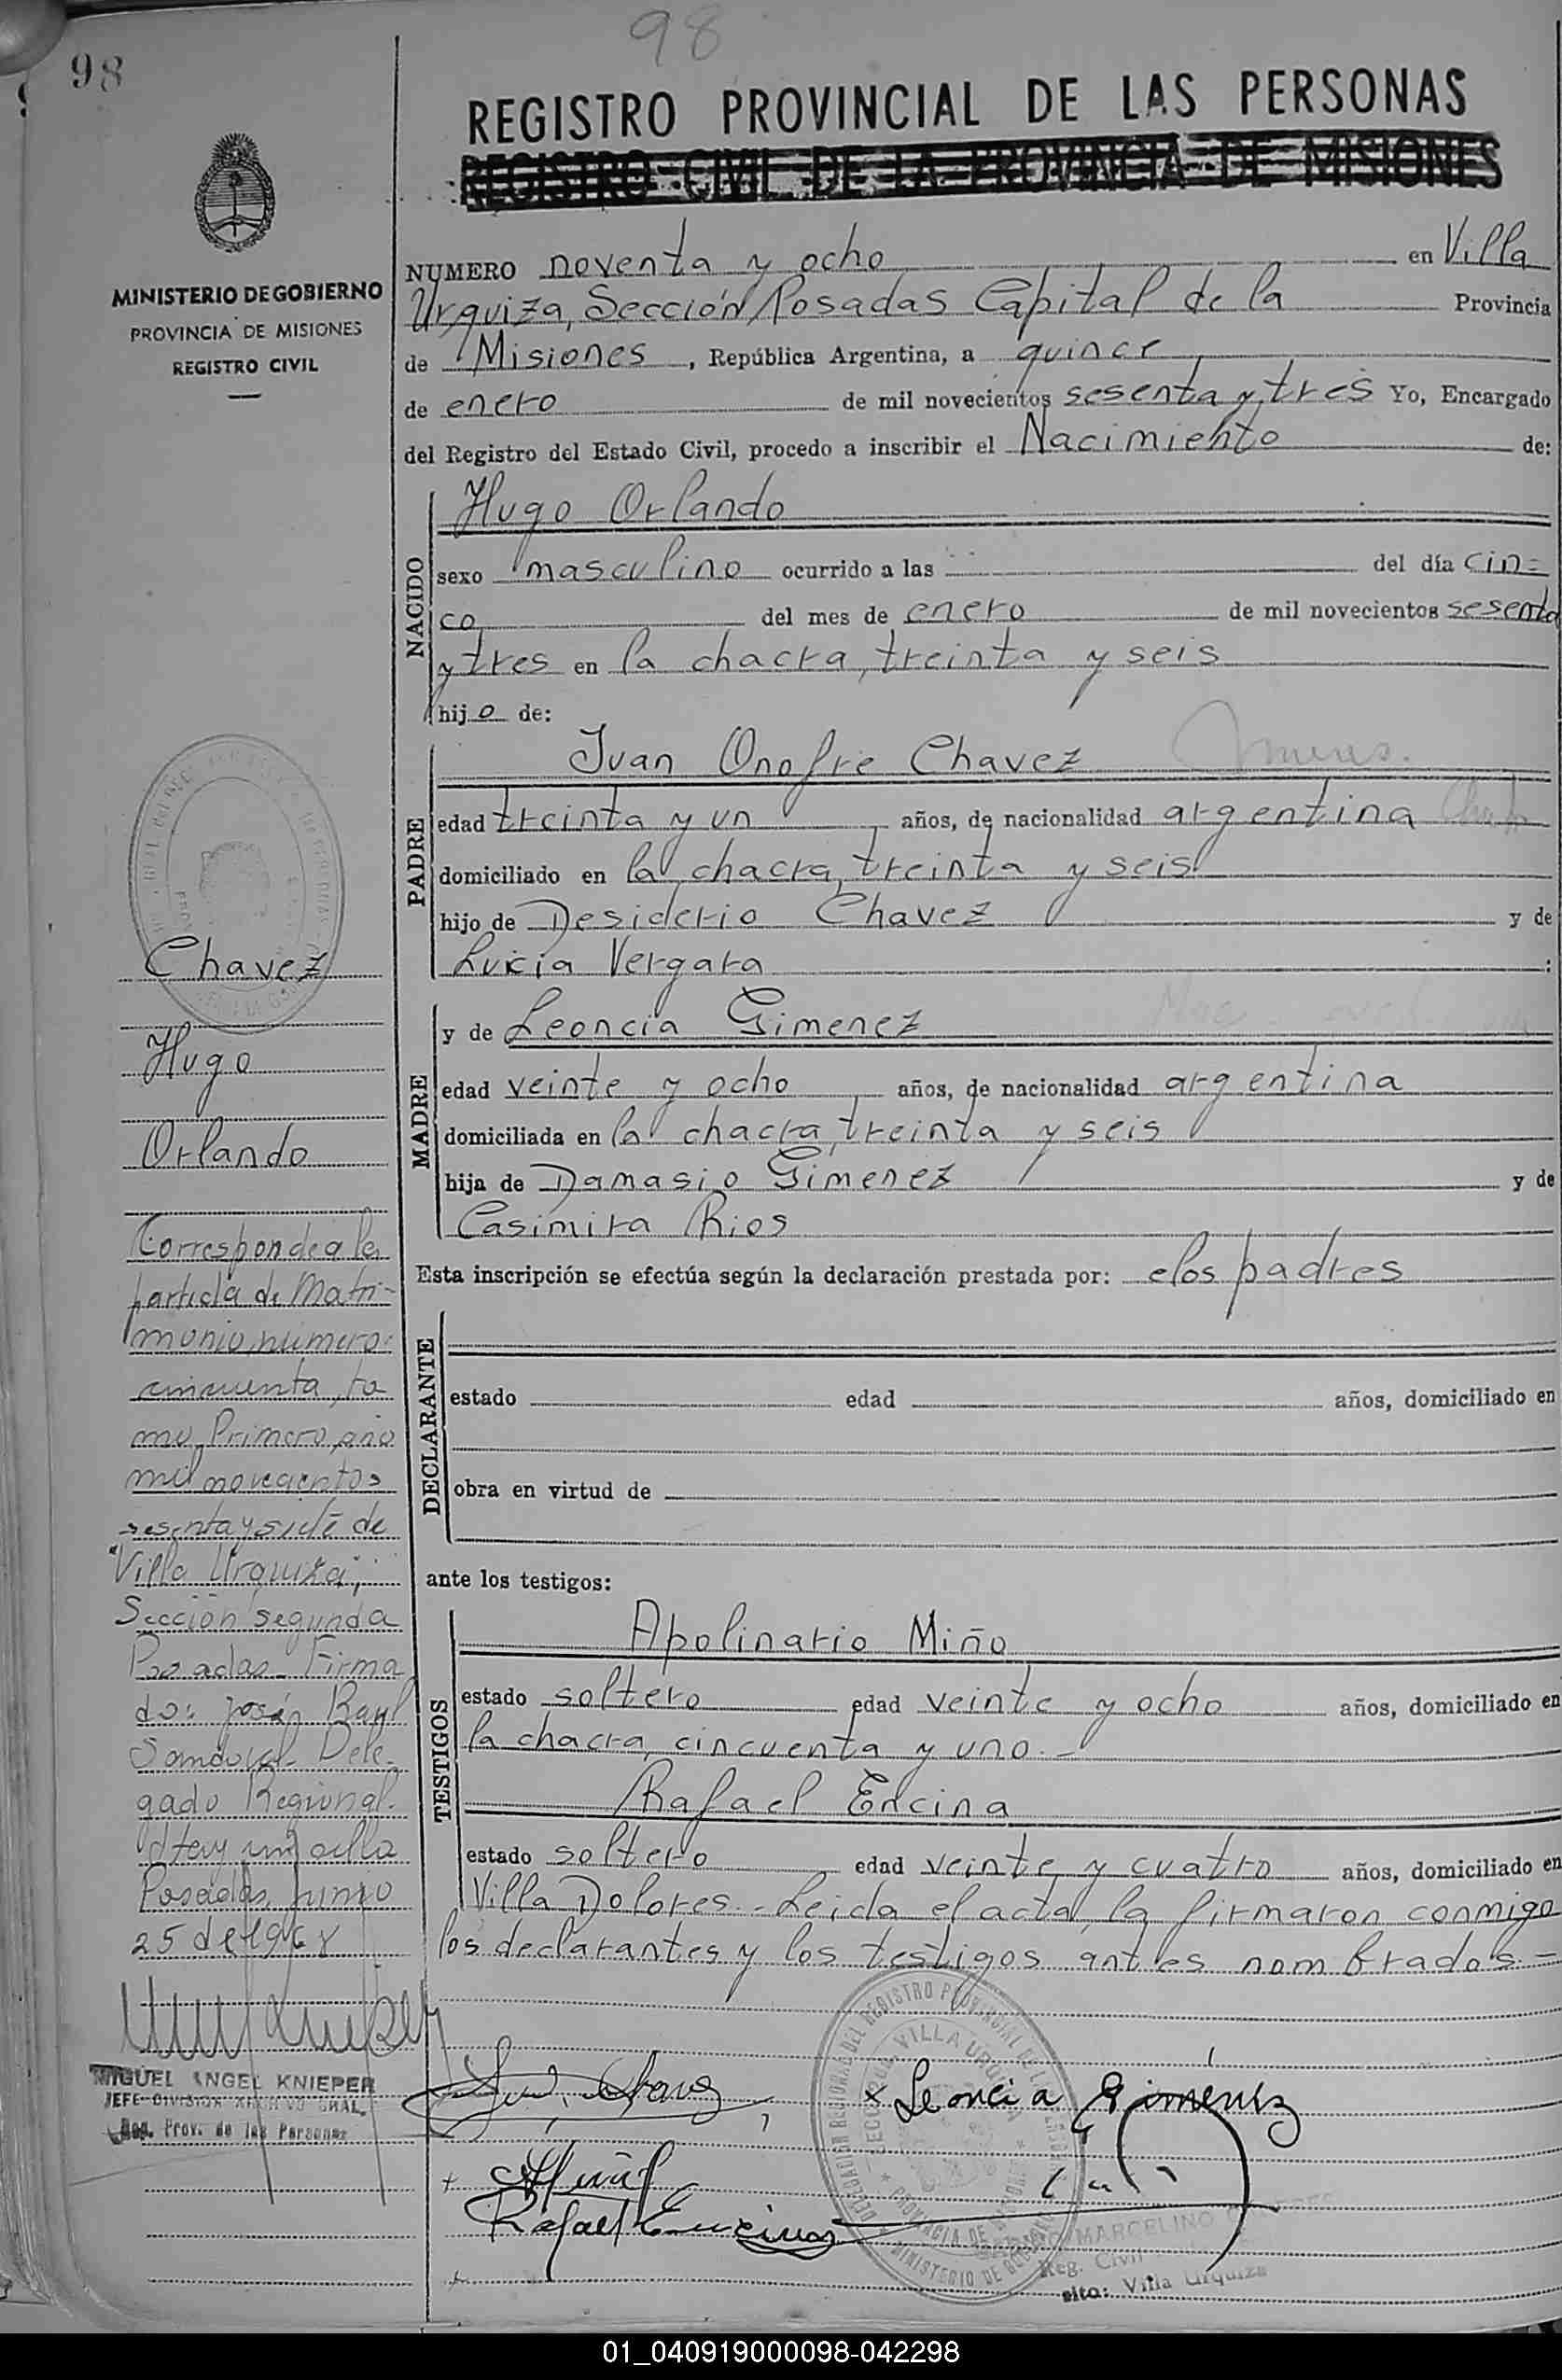 98
98
REGISTRO PROVINCIAL DE LAS PERSONAS
REGISTRO CIVIL DE LA PROVINCIA DE MISIONES
MINISTERIO DE GOBIERNO
PROVINCIA DE MISIONES
REGISTRO CIVIL
NUMERO noventa y ocho en Villa
Urquiza, Sección Posadas Capital de la Provincia
de Misiones, República Argentina, a quince
de enero de mil novecientos sesenta y tres Yo, Encargado
del Registro del Estado Civil, procedo a inscribir el Nacimiento de:
NACIDO
Hugo Orlando
sexo masculino ocurrido a las del día cin=
co del mes de enero de mil novecientos sesenta
y tres en la chacra, treinta y seis
hijo de:
PADRE
Juan Onofre Chavez
edad treinta y un años, de nacionalidad argentina
domiciliado en la chacra, treinta y seis
hijo de Desiderio Chavez y de
Lucia Vergara :
MADRE
y de Leoncia Gimenez
edad veinte y ocho años, de nacionalidad argentina
domiciliada en la chacra, treinta y seis
hija de Damasio Gimenez y de
Casimira Rios
Esta inscripción se efectúa según la declaración prestada por: elos padres
DECLARANTE
estado edad años, domiciliado en
obra en virtud de
ante los testigos:
TESTIGOS
Apolinario Miño
estado soltero edad veinte y ocho años, domiciliado en
la chacra, cincuenta y uno.-
Rafael Encina
estado soltero edad veinte y cuatro años, domiciliado en
Villa Dolores.- Leida el acta, la firmaron conmigo
los declarantes y los testigos antes nombrados.=
Chavez
Hugo
Orlando
Corresponde a la
partida de Matri-
monio número
cincuenta, to
mo Primero, año
mil novecientos
sesenta y siete de
"Villa Urquiza",
Sección segunda
Posadas- Firma
do: José Raul
Sandoval- Dele-
gado Regional.
Hay un sello
Posadas, junio
25 de 1968
MIGUEL ANGEL KNIEPER
JEFE DIVISION ARCHIVO GRAL.
Reg. Prov. de las Personas
x Leoncia Giménez
Rafael Encina
VILLA URQUIZA
PROVINCIA DE MISIONES
MINISTERIO DE GOBIERNO
MARCELINO
Reg. Civil
sito: Villa Urquiza
01_040919000098-042298